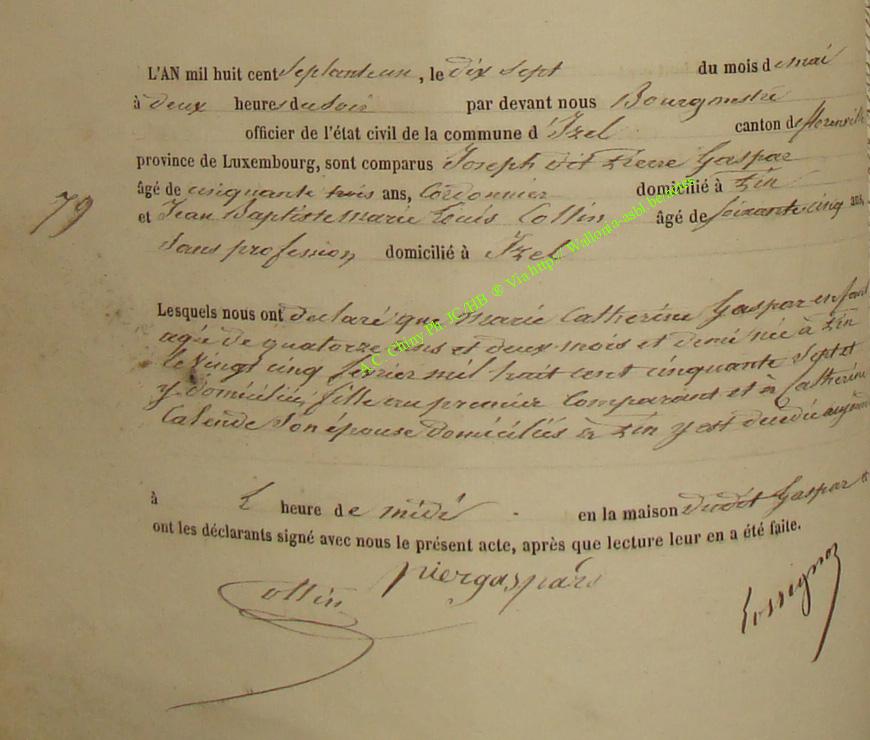 L'AN mil huit cent septante un, le dix sept du mois de mai
à deux heures du soir par devant nous Bourgmestre
officier de l'état civil de la commune d'Izel canton de florenville
province de Luxembourg, sont comparus Joseph dit Pierre Gaspar
79
âgé de cinquante trois ans, Cordonnier domicilié à Pin
et Jean Baptiste Marie Louis Collin âgé de soixante cinq ans,
sans profession domicilié à Izel
A.C. Chiny Ph. JC/HB ® Via http://Wallonia-asbl.be
Lesquels nous ont declaré que Marie Catherine Gaspar enfant
agée de quatorze ans et deux mois et demi née à Pin
le vingt cinq fevrier mil huit cent cinquante sept et
y domiciliée, fille du premier Comparant et de Catherine
son épouse domiciliés à Pin y est decedée aujourd
à heure de midi en la maison dudit Gaspar et
ont les déclarants signé avec nous le présent acte, après que lecture leur en a été faite.
piergaspars
Collin
Rossignon